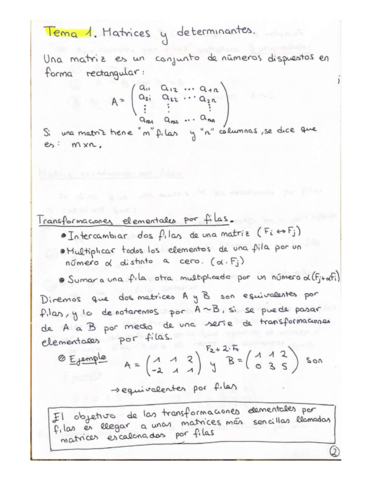 Tema 1. Matrices y determinantes.
Una matriz es un conjunto de números dispuestos en
forma rectangular:
A = ( a11 a12 ... a1n
a21 a22 ... a2n
⋮ ⋮ ⋮
am1 am2 ... amn )
Si una matriz tiene "m" filas y "n" columnas, se dice que
es: m×n.
Transformaciones elementales por filas.
• Intercambiar dos filas de una matriz (Fi ↔ Fj)
• Multiplicar todos los elementos de una fila por un
número α distinto a cero. (α·Fj)
• Sumar a una fila otra multiplicada por un número α (Fj+αFi)
Diremos que dos matrices A y B son equivalentes por
filas, y lo denotaremos por A~B, si se puede pasar
de A a B por medio de una serie de transformaciones
elementales por filas.
Ejemplo A = ( 1 1 2 / -2 1 1 ) F2+2·F1 y B = ( 1 1 2 / 0 3 5 ) son
→ equivalentes por filas
El objetivo de las transformaciones elementales por
filas es llegar a unas matrices más sencillas llamadas
matrices escalonadas por filas
2